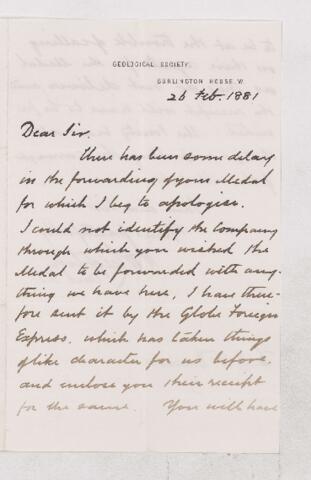 GEOLOGICAL SOCIETY,
BURLINGTON HOUSE. W.
26 Feb. 1881
Dear Sir.
There has been some delay
in the forwarding of your Medal
for which I beg to apologise.
I could not identify the Company
through which you wished the
Medal to be forwarded with any-
thing we have here, I have there-
fore sent it by the Globe Foreign
Express, which has taken things
of like character for us before,
and enclose you their receipt
for the same. You will have